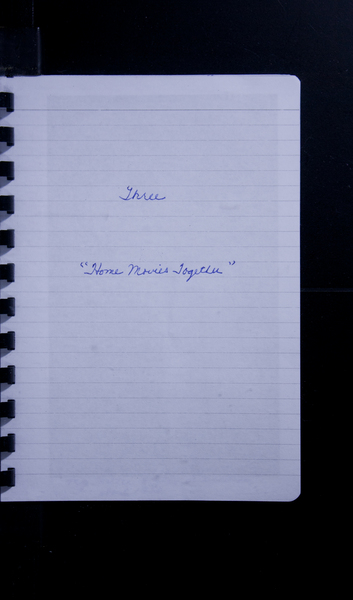 Three
"Home Movies Together"